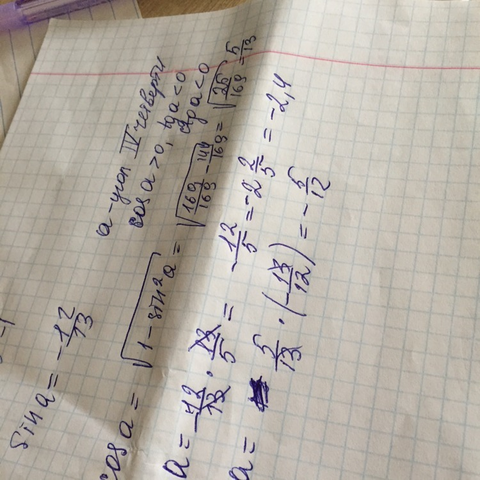 a-угол IV четверти
cos a > 0, tg a < 0
ctg a < 0
sin a = -12/13
cos a = √(1-sin²a) = √(169/169 - 144/169) = √(25/169) = 5/13
a = -12/13 · 13/5 = -12/5 = -2 2/5 = -2,4
a = 5/13 · (-13/12) = -5/12